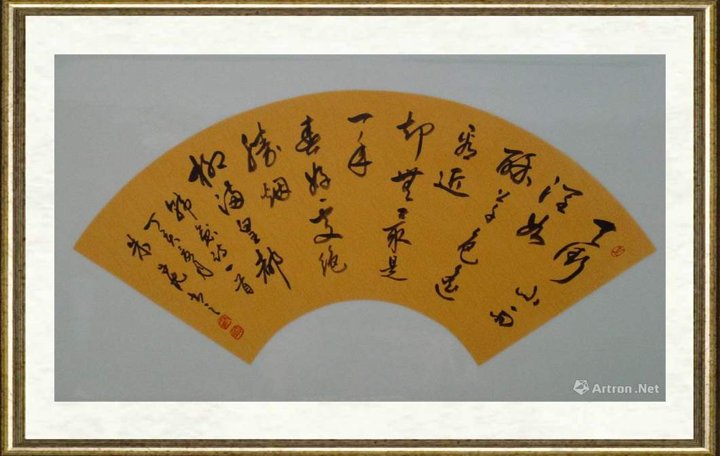 天街小雨
润如
酥草色遥
看近
却無最是
一年
春好处绝
胜烟
柳满皇都
韩愈诗一首
丁亥
Artron.Net